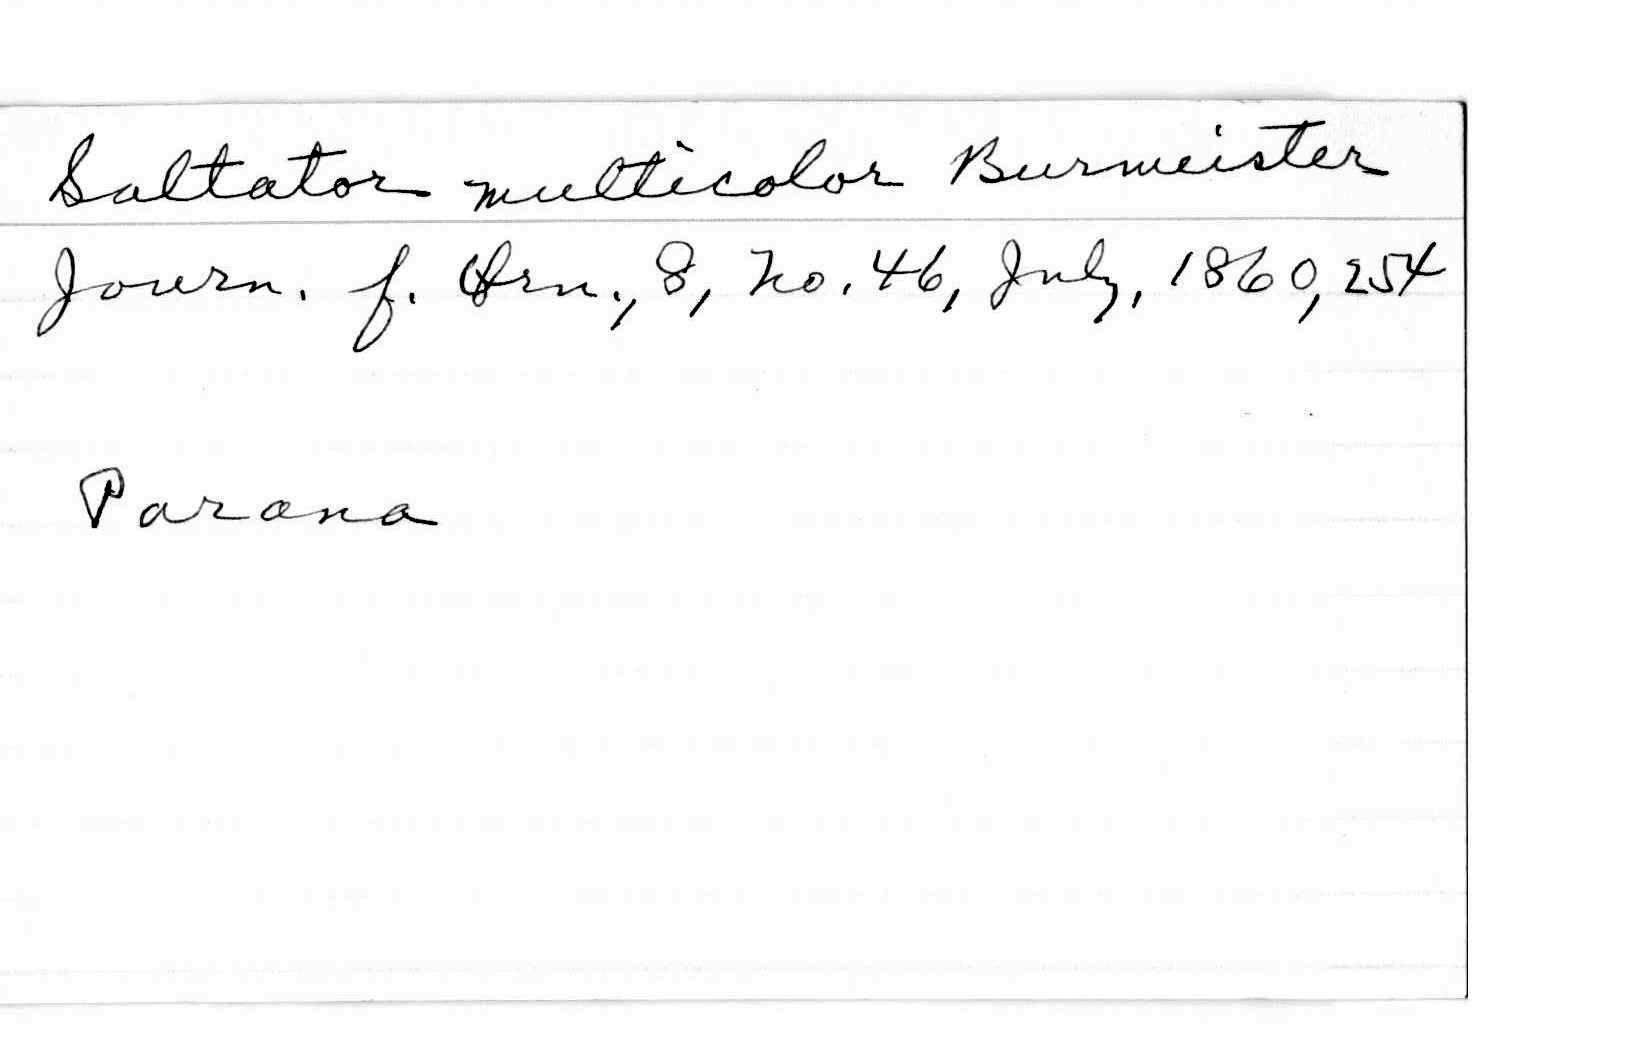 Saltator multicolor Burmeister
Journ. f. Orn., 8, No. 46, July, 1860, 254
Parana